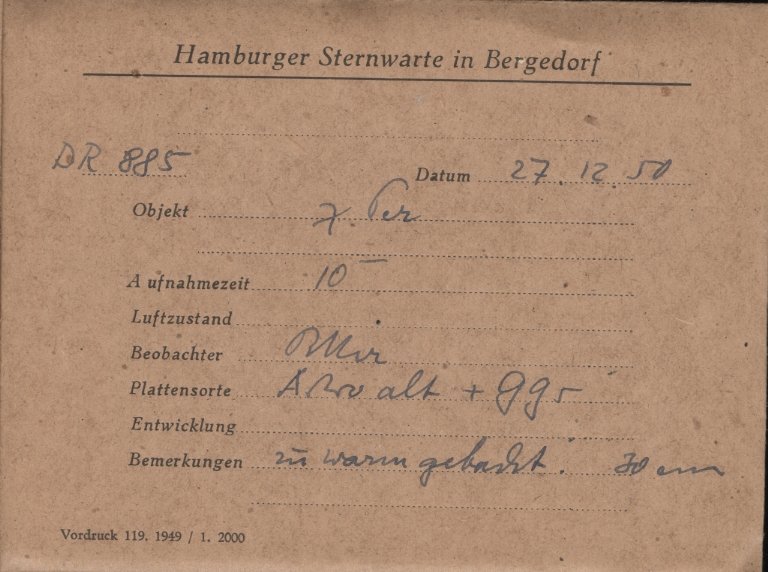 Hamburger Sternwarte in Bergedorf
DR 885 Datum 27. 12. 50
Objekt Per
Aufnahmezeit 10
Luftzustand
Beobachter
Plattensorte alt +
Entwicklung
Bemerkungen zu warm gebackt. 30 cm
Vordruck 119. 1949 / 1. 2000